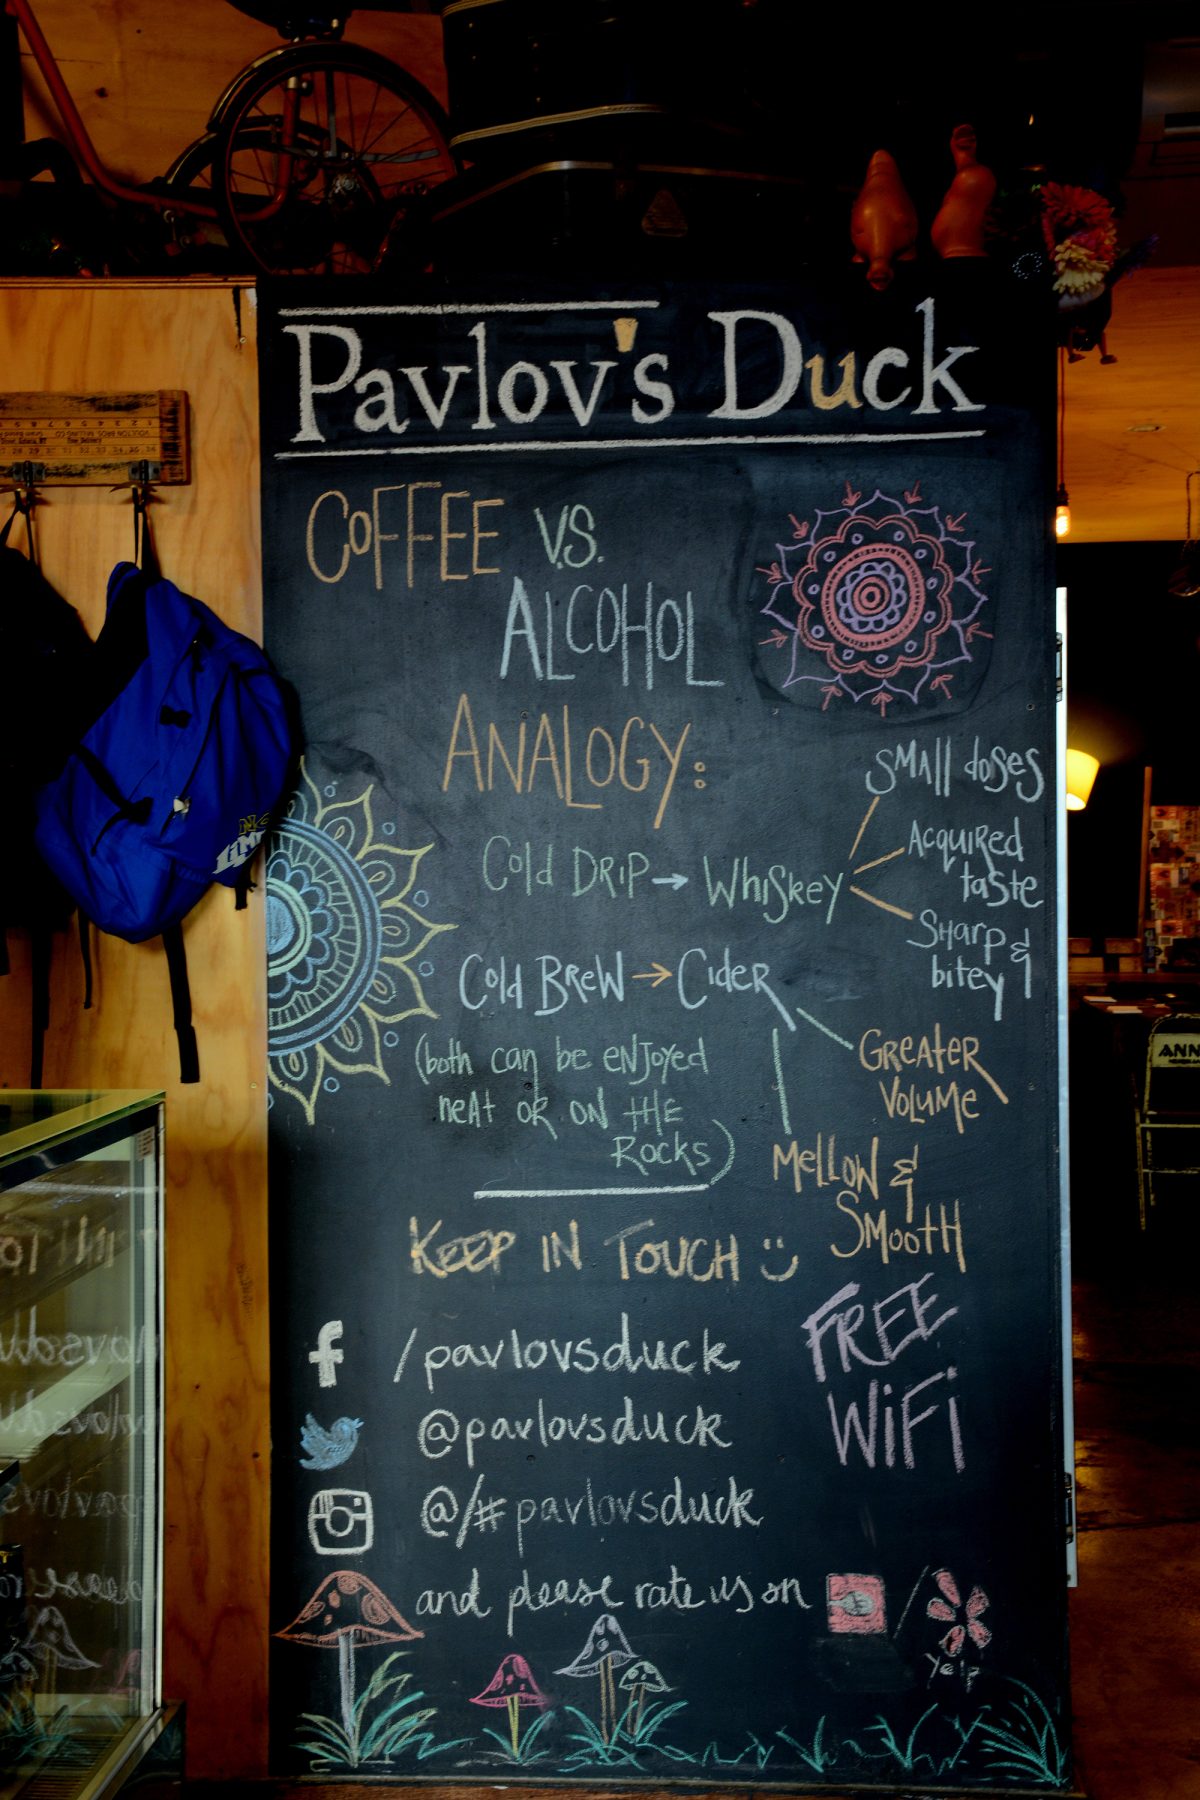 Pavlov's Duck
COFFEE V.S.
ALCOHOL
ANALOGY:
Cold DRIP → WHISKEY
SMAll doSES
Acquired
taste
SHarp &
bitey
Cold BREW → CideR
GREATER
VOLUME
MELLOW &
SMOOTH
(both can be enjoyed
neAt OR ON tHE
ROCKS)
KEEP IN TOUCH
f /pavlovsduck
@pavlovsduck
@/#pavlovsduck
FREE
WiFi
and please rate us on
/
yelp
ANN